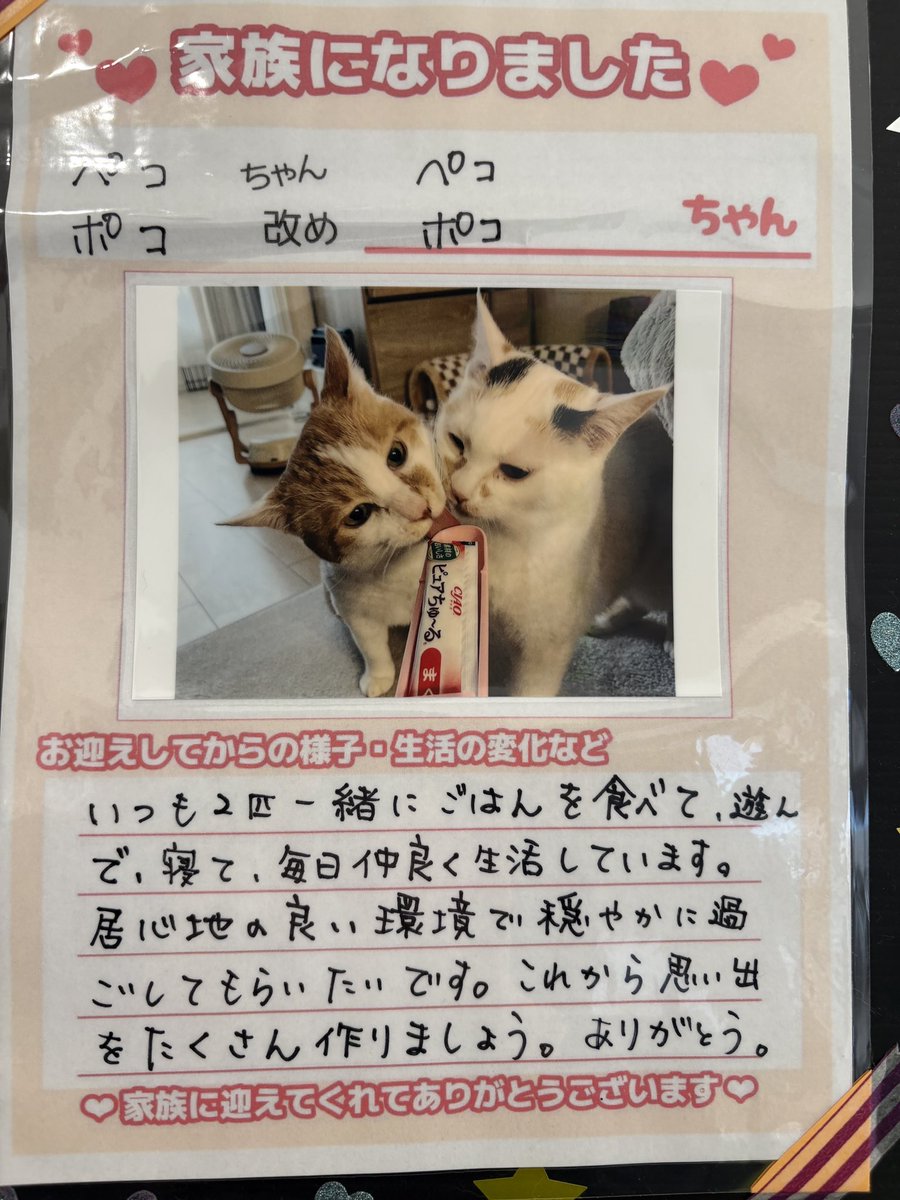 家族になりました
ペコ ちゃん ペコ
ポコ 改め ポコ ちゃん
CIAO
ピュアちゅ〜る
ま
お迎えしてからの様子・生活の変化など
いつも2匹一緒にごはんを食べて、遊ん
で、寝て、毎日仲良く生活しています。
居心地の良い環境で穏やかに過
ごしてもらいたいです。これから思い出
をたくさん作りましょう。ありがとう。
❤家族に迎えてくれてありがとうございます❤